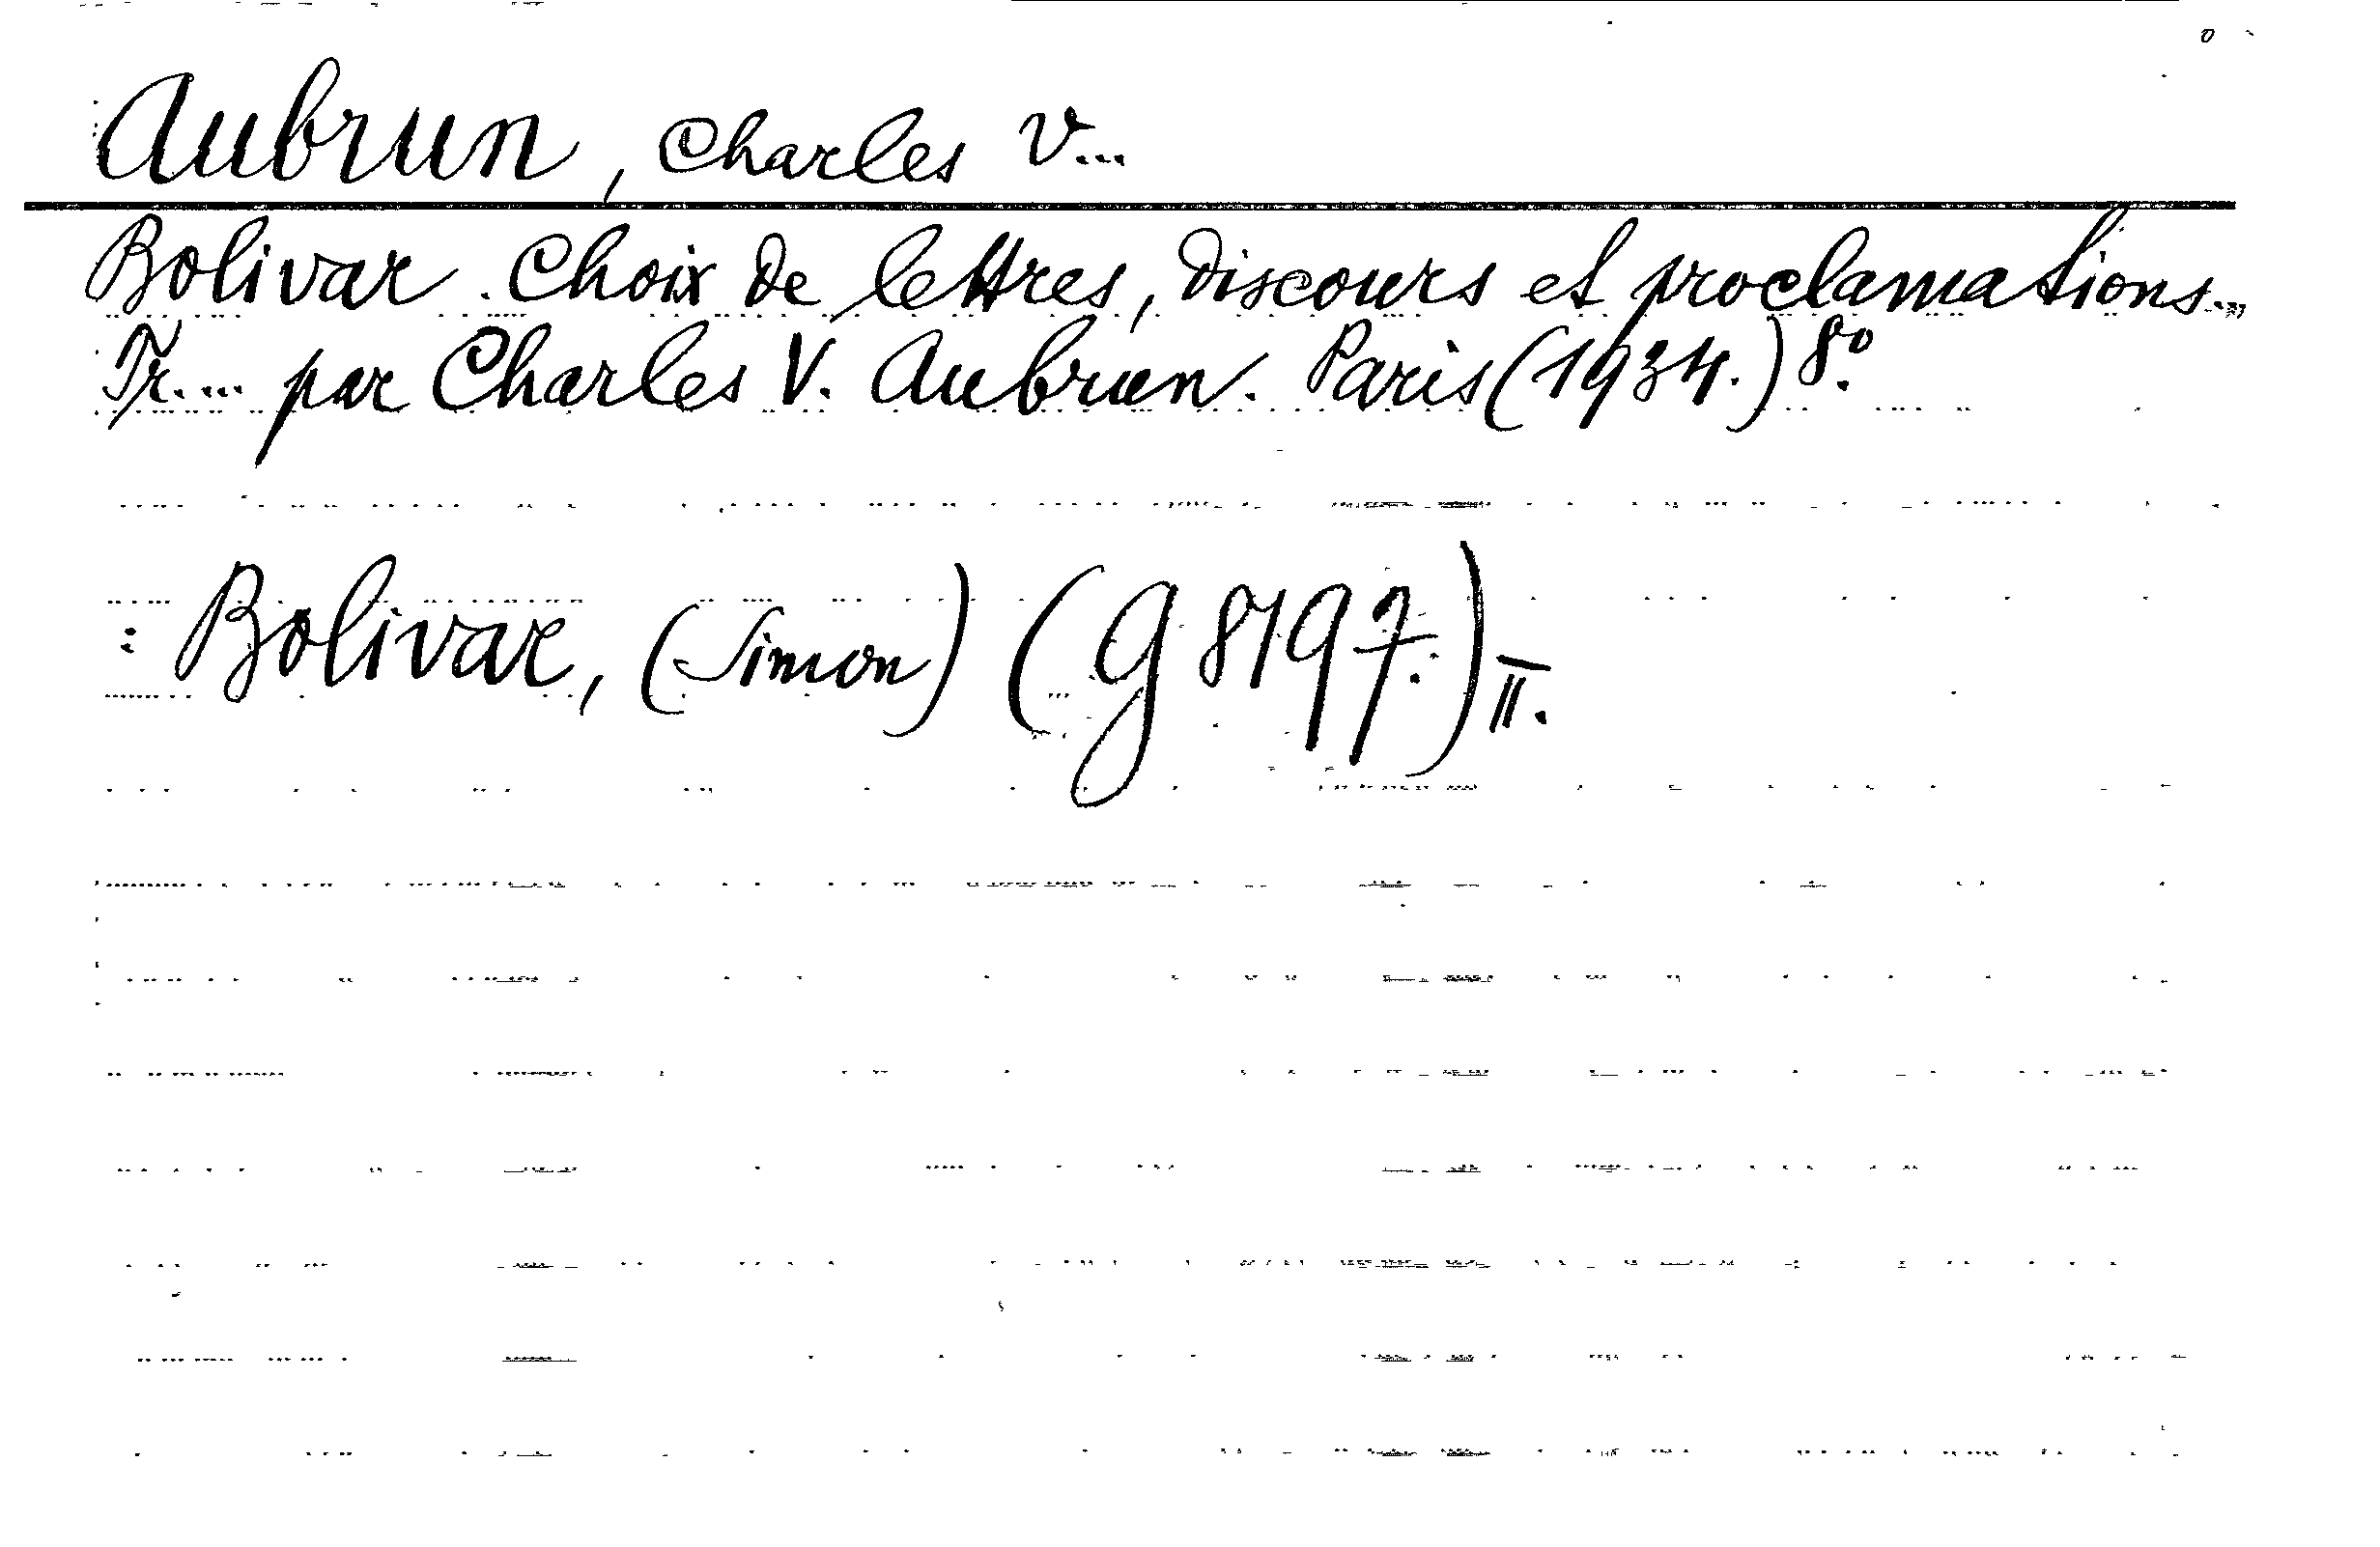 Aubrun, Charles V...
Bolivar. Choix de lettres, discours et proclamations...
Tr.... par Charles V. Aubrun. Paris (1934.) 8º.
: Bolivar, (Simon) (G 8197.) II.